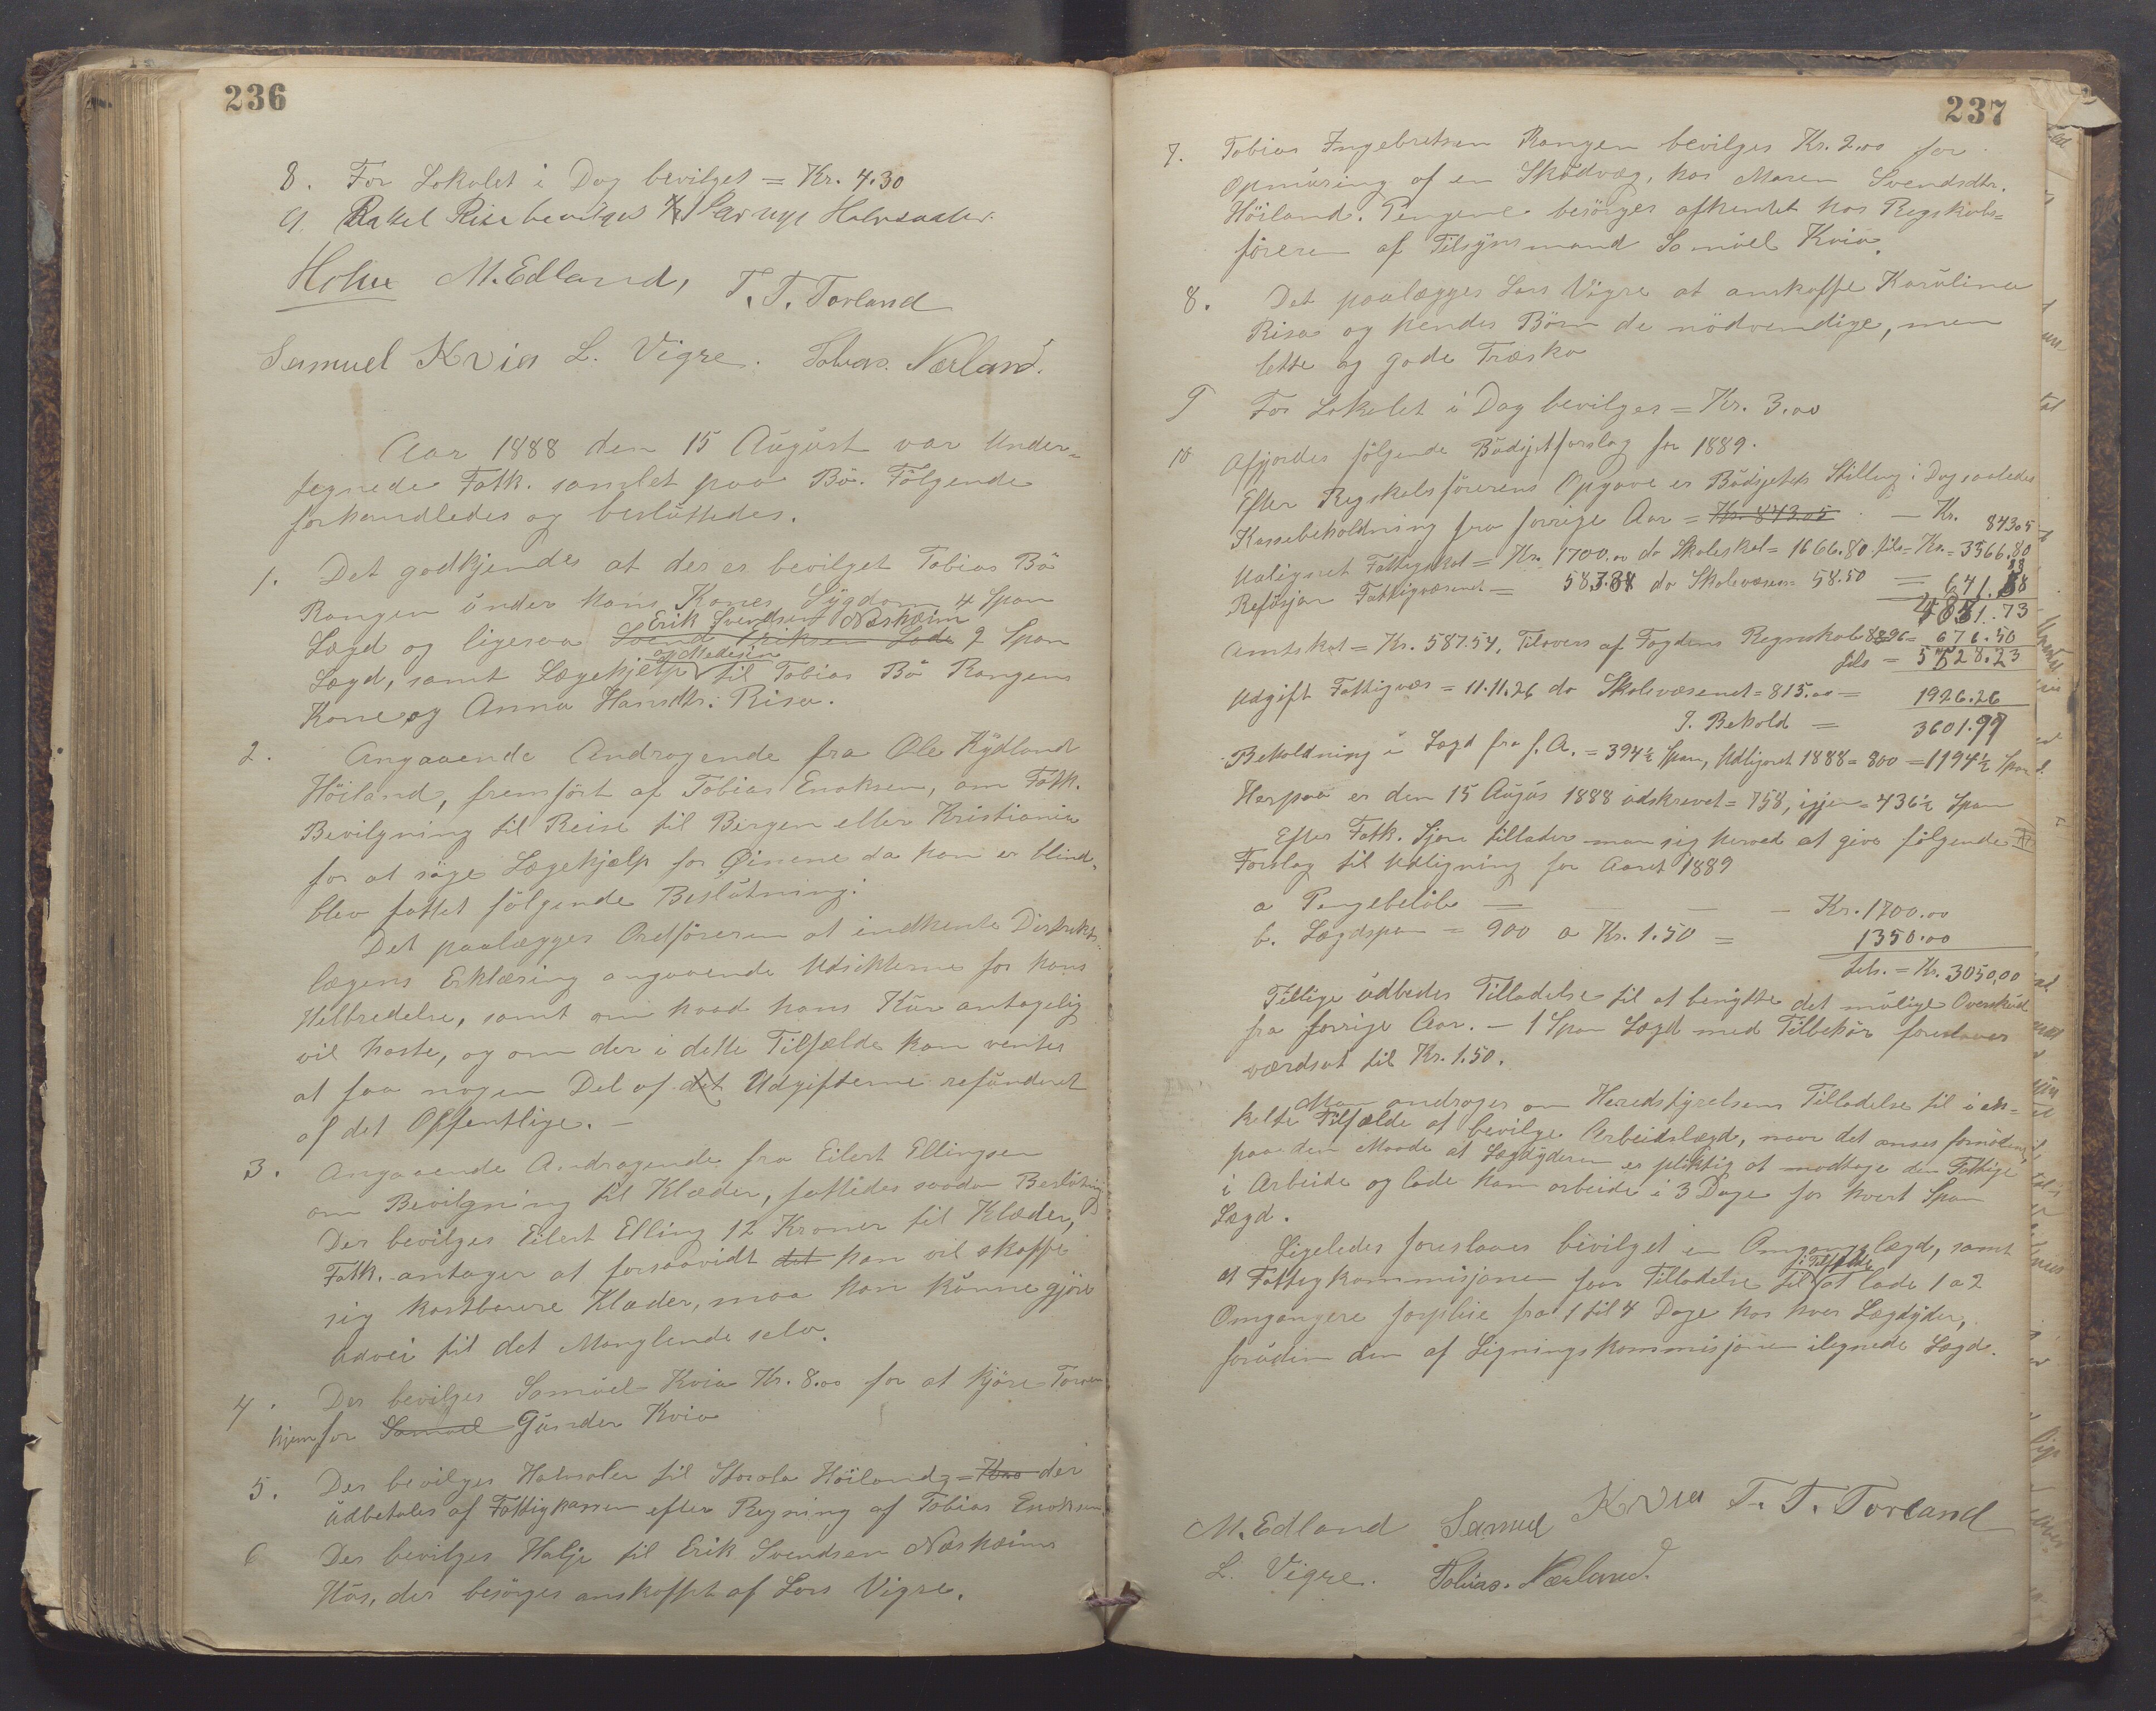 236
8. For Lokalet i Dag bevilges = Kr. 4.30
9. Rakel Risa bevilges 1 Par nye Halvsaaler.
Holm M. Edland, T. T. Torland
Samuel Kvia L. Vigre. Tobias. Nærland.
Aar 1888 den 15 August var Under-
tegnede Fatk. samlet paa Bö. Fölgende
forhandledes og besluttedes.
1. Det godkjendes at der er bevilget Tobias Bö
Rangen under hans Kones Sygdom 4 Span
Erik Svendsen Næsheim
Lægd og ligesaa Svend Eriksen Lode 2 Span
og Medesin
Lægd, samt Lægehjelp til Tobias Bö Rangens
Kone og Anna Hansdtr. Risa.
2. Angaaende Andragende fra Ole Kydland
Höiland, fremfört af Tobias Enoksen, om Fatk.
Bevilgning til Reise til Bergen eller Kristiania
for at söge Lægehjælp for Øinene da han er blind,
blev fattet fölgende Beslutning:
Det paalægges Ordföreren at indhente Distrikts-
lægens Erklæring angaaende Udsikterne for hans
Helbredelse, samt om hvad hans Kur antagelig
vil koste, og om der i dette Tilfælde kan ventes
at faa nogen Del af det Udgifterne refunderet
af det Offentlige. –
3. Angaaende Andragende fra Eilert Ellingsen
om Bevilgning til Klæder, fattedes saadan Beslutning
Der bevilges Eilert Elling 12 Kroner til Klæder,
Fatk. antager at forsaavidt det han vil skaffe
sig kostbarere Klæder, maa han kunne gjöre
Udvei til det Manglende selv.
4. Der bevilges Samuel Kvia Kr. 8.00 for at kjöre Torven
hjem for Samuel Gunder Kvia
5. Der bevilges Halvsaler til Höiland = der
udbetales af Fattigkassen efter Regning af Tobias Enoksen.
6 Der bevilges Halje til Erik Svendsen Næsheims
Hus, der besörges anskaffet af Lars Vigre.
237
7. Tobias Ingebretsen Rangen bevilges Kr. 2.00 for
Opmuring af en Skudvæg, hos Maren Svendsdtr.
Höiland. Pengene besörges afhentet hos Regskabs=
föreren af Tilsynsmand Samuel Kvia.
8. Det paalægges Lars Vigre at anskaffe Karuline
Risa og hendes Börn de nödvendige, men
lette og gode Træsko
9 For Lokalet i Dag bevilges = Kr. 3.00
10 Afgjordes fölgende Budsjetforslag for 1889.
Efter Regskabsförerens Opgave er Budsjetets Stilling i Dag saaledes
Kassebeholdning fra forrige Aar = Kr. 843.05 — Kr. 843.05
Udlignet Fattigskat = Kr. 1700.00 do Skoleskat = 1666.80 tils = Kr. = 3366.80
Refusjon Fattigvæsenet = 583.88 do Skolevæsen = 58.50 = 641.88
4851.73
Amtskat = Kr. 587.54, Tilovers af Fogdens Regnskab 88.96 = 676.50
tils = 5528.23
Udgift Fattigvæs = 1111.26 do Skolevæsenet = 815.00 = 1926.26
I. Behold = 3601.97
Beholdning i Lægd fra f. A. = 394½ Span, Udlignet 1888 = 800 = 1194½ Span
Herpaa er den 15 Augus 1888 udskrevet = 758, igjen = 436½ Span
Efter Fatk. Skjön tillader man sig herved at give fölgende
Forslag til Udligning for Aaret 1889
a Pengebelöb — — — Kr. 1700.00
b. Lægdspan = 900 a Kr. 1.50 = 1350.00
tils. = Kr. 3050,00
Tillige udbedes Tilladelse til at benytte det mulige Overskud
fra forrige Aar. – 1 Span Lægd med Tilbehör foreslaaes
værdsat til Kr. 1.50.
Man andrager om Heredstyrelsens Tilladelse til i en-
kelte Tilfælde at bevilge Arbeidslægd, naar det anses fornödent,
paa den Maade at Lægdyderen er pliktig at modtage den Fattige
i Arbeide og lade ham arbeide i 3 Dage for hvert Span
Lægd.
Ligeledes foreslaaes bevilget en Omgangslægd, samt
i Tilfælde
at Fattigkommisjonen faar Tilladelse til at lade 1 a 2
Omgangere forpleie fra 1 til 4 Dage hos hver Lægdyder,
foruden den af Ligningskommisjonen ilignede Lægd.
M. Edland Samuel Kvia T. T. Torland
L. Vigre. Tobias. Nærland.